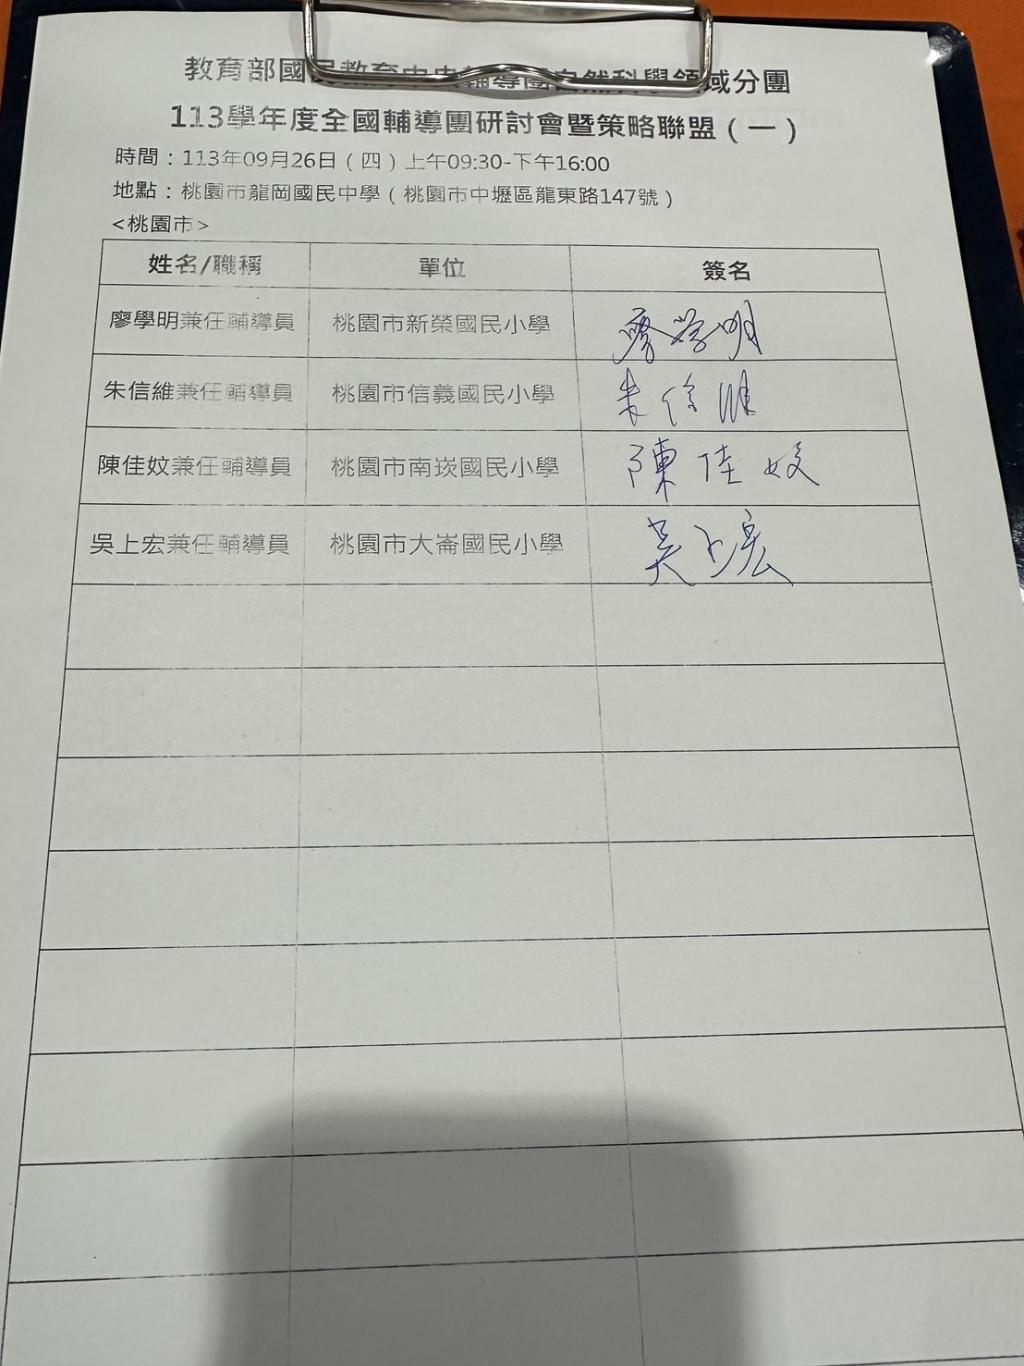 教育部國民教育中央輔導團自然科學領域分團
113學年度全國輔導團研討會暨策略聯盟（一）
時間：113年09月26日（四）上午09:30-下午16:00
地點：桃園市龍岡國民中學（桃園市中壢區龍東路147號）
<桃園市>
姓名/職稱 單位 簽名
廖學明兼任輔導員 桃園市新榮國民小學 廖学明
朱信維兼任輔導員 桃園市信義國民小學 朱信維
陳佳妏兼任輔導員 桃園市南崁國民小學 陳佳妏
吳上宏兼任輔導員 桃園市大崙國民小學 吳上宏